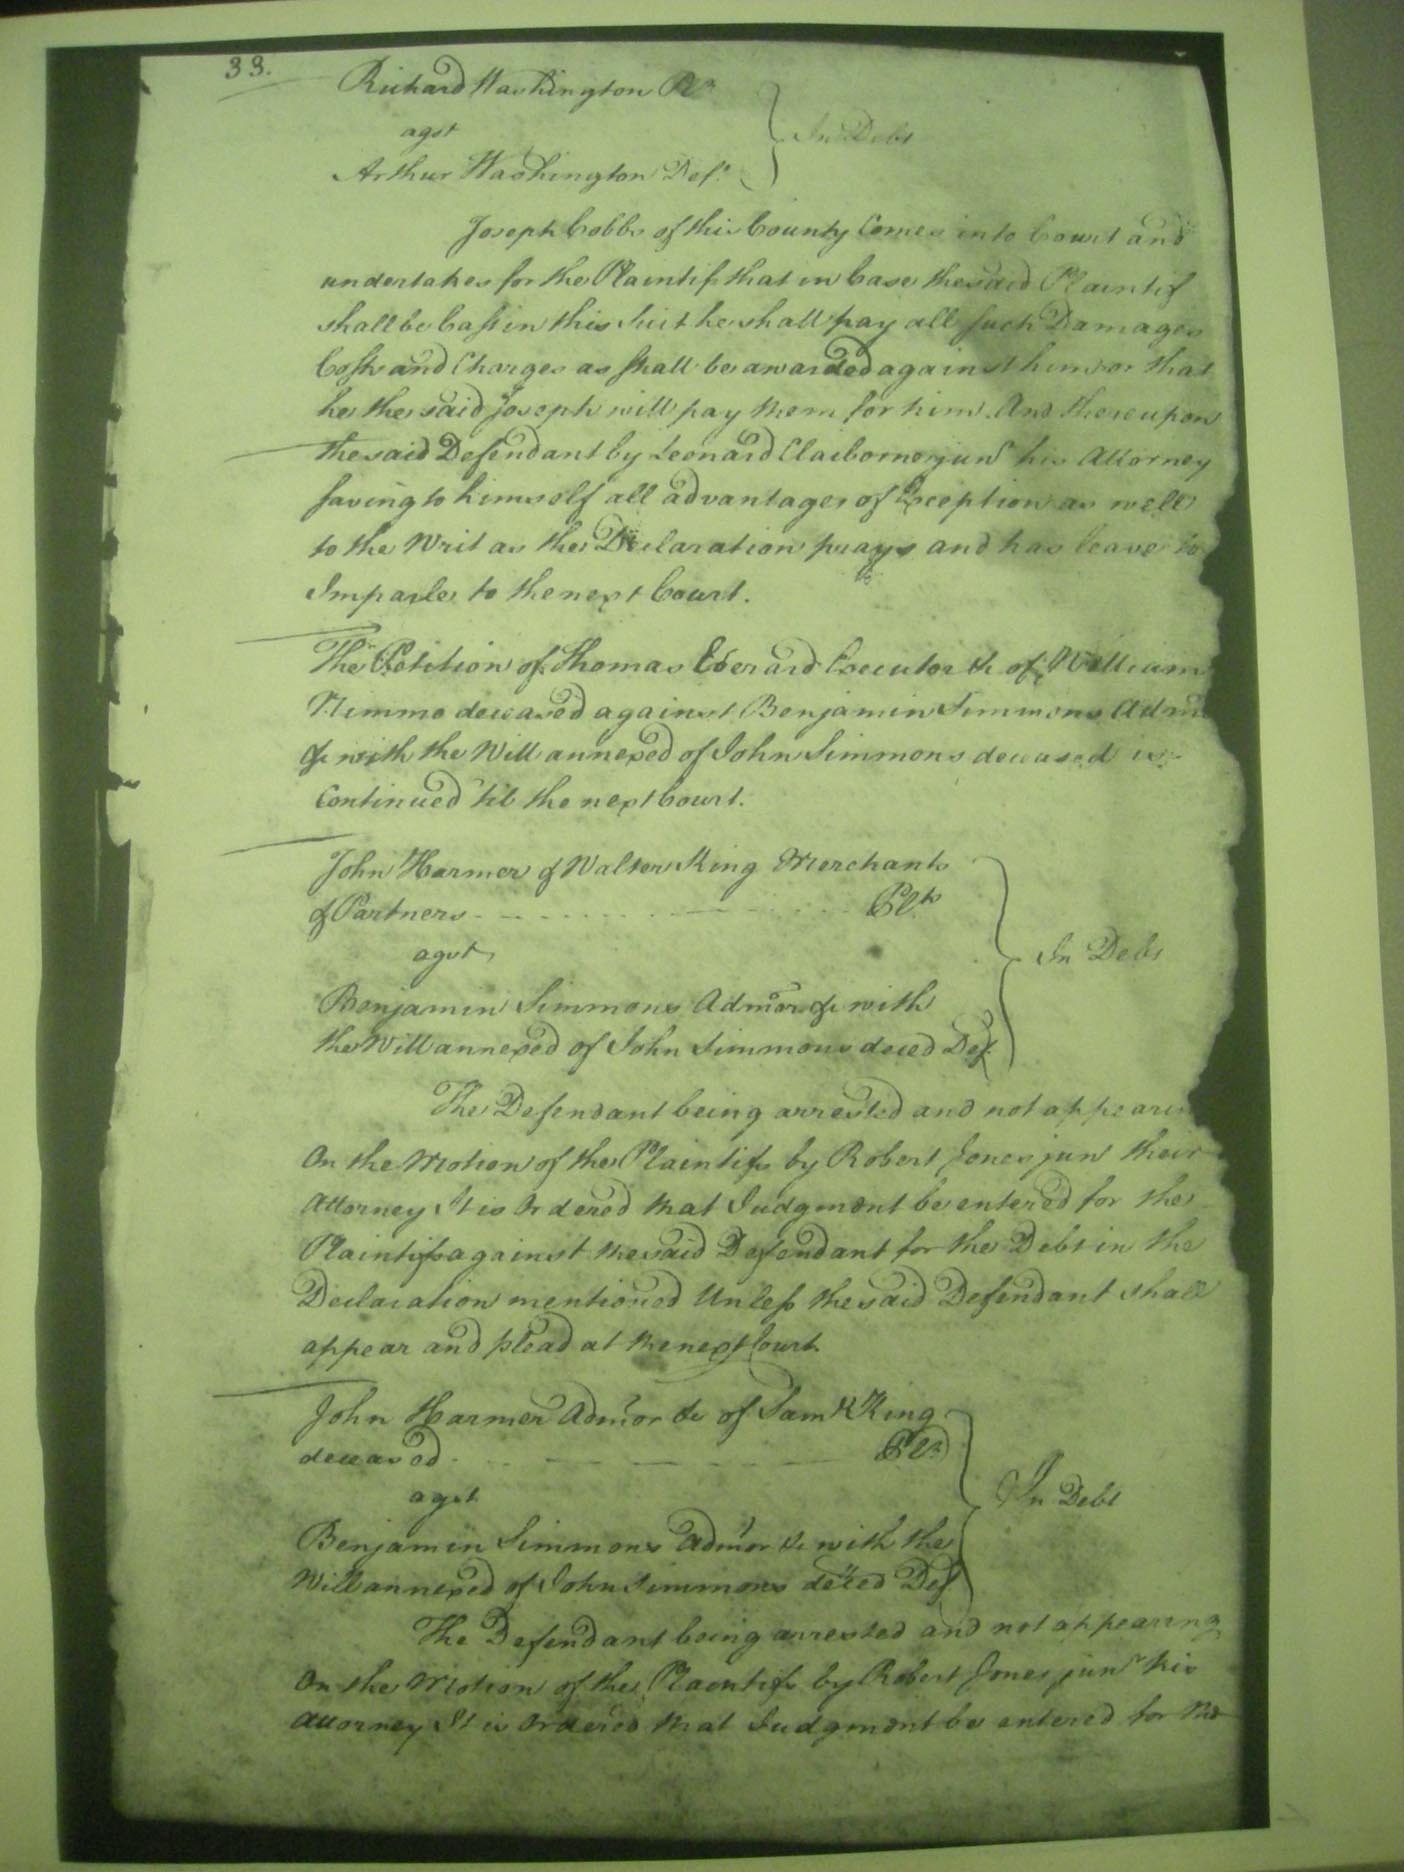 33.
Richard Washington Plt
agst
Arthur Washington Deft
In Debt
Joseph Cobbs of this County Comes into Court and
undertakes for the Plaintif that in Case the said Plaintif
shall be Cast in this Suit he shall pay all such Damages
Costs and Charges as shall be awarded against him or that
he the said Joseph will pay them for him And thereupon
the said Defendant by Leonard Claiborne junr his Attorney
saving to himself all advantages of Exception as well
to the Writ as the Declaration prays and has leave to
Imparle to the next Court.
The Petition of Thomas Everard Executor &c of William
Nimmo deceased against Benjamin Simmons Admr
&c with the Will annexed of John Simmons deceased is
Continued till the next Court.
John Harmer & Walter King Merchants
& Partners Plts
agst
Benjamin Simmons Admor &c with
the Will annexed of John Simmons deced Def
In Debt
The Defendant being arrested and not appearing
On the Motion of the Plaintifs by Robert Jones junr their
Attorney It is Ordered that Judgment be entered for the
Plaintifs against the said Defendant for the Debt in the
Declaration mentioned Unless the said Defendant shall
appear and plead at the next Court
John Harmer Admor &c of Saml King
deceased Plt
agst
Benjamin Simmons Admor &c with the
Will annexed of John Simmons deced Def
In Debt
The Defendant being arrested and not appearing
On the Motion of the Plaintifs by Robert Jones junr his
Attorney It is Ordered that Judgment be entered for the